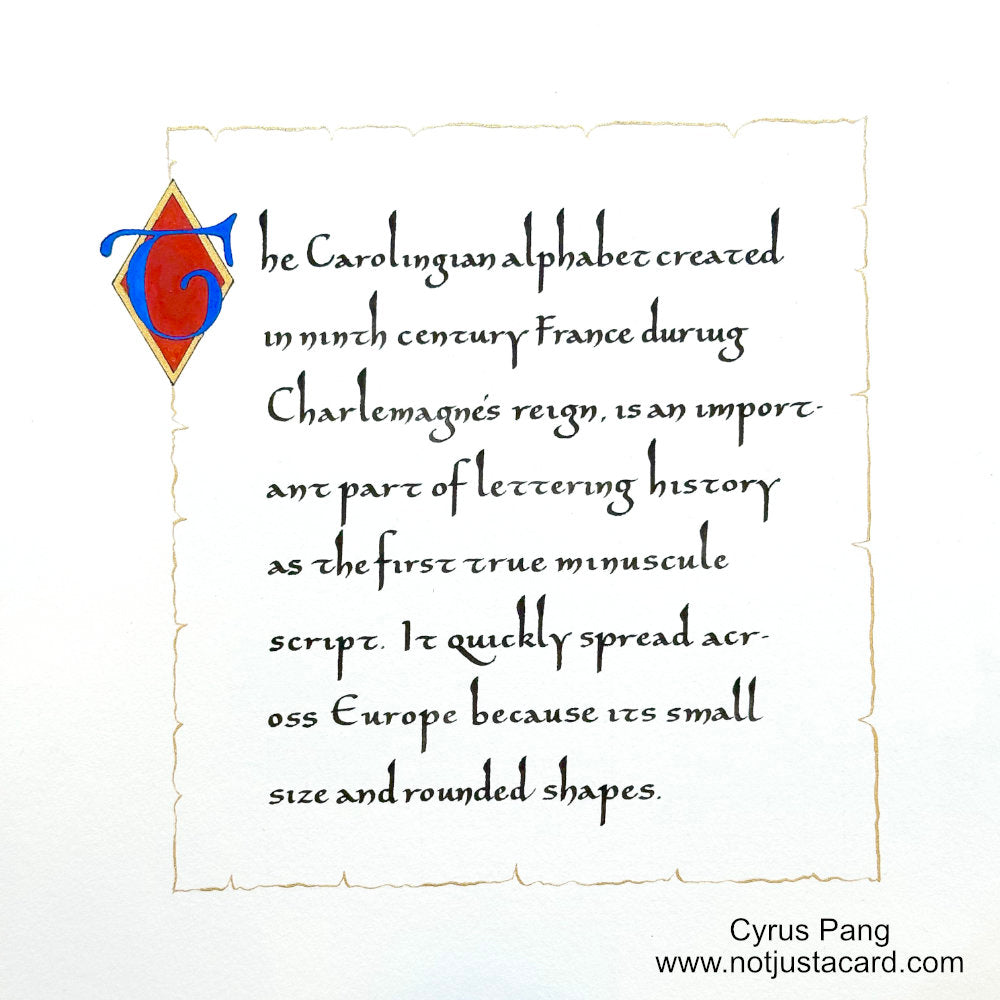 The Carolingian alphabet created
in ninth century France during
Charlemagne's reign, is an import-
ant part of lettering history
as the first true minuscule
script. It quickly spread acr-
oss Europe because its small
size and rounded shapes.
Cyrus Pang
www.notjustacard.com